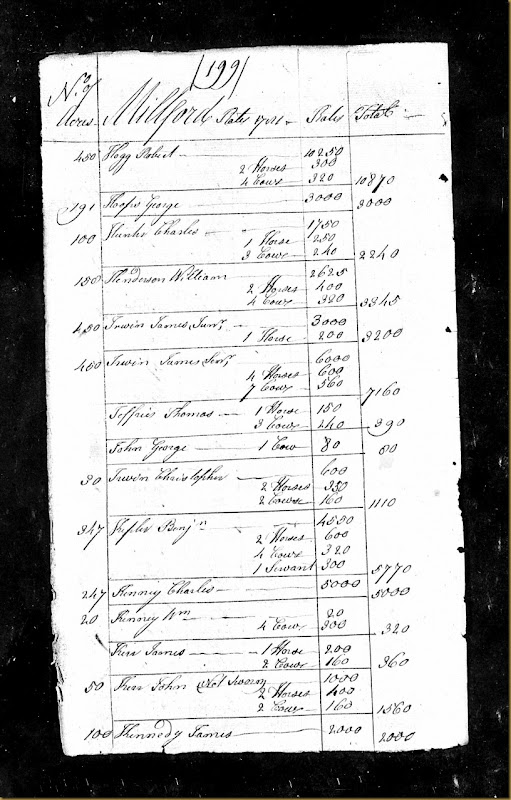 (199)
No. of
Acres Milford Rates 1781 Rates Total
450 Hogg Robert 10250
2 Horses 300
4 Cows 320 10870
191 Hoops George 3000 3000
100 Hunter Charles 1750
1 Horse 250
3 Cows 240 2240
150 Henderson William 2625
2 Horses 400
4 Cows 320 3345
450 Irwin James Junr. 3000
1 Horse 200 3200
450 Irwin James Senr. 6000
4 Horses 600
7 Cows 560 7160
Jeffries Thomas 1 Horse 150
3 Cows 240 390
John George 1 Cow 80 80
30 Irwin Christopher 600
2 Horses 350
2 Cows 160 1110
347 Kepler Benjn 4550
2 Horses 600
4 Cows 320
1 Servant 300 5770
247 Kenney Charles 5000 5000
20 Kenney Wm 20
4 Cows 300 320
Kerr James 1 Horse 200
2 Cows 160 360
50 Kerr John Not Sworn 1000
2 Horses 400
2 Cows 160 1560
100 Kennedy James 2000 2000